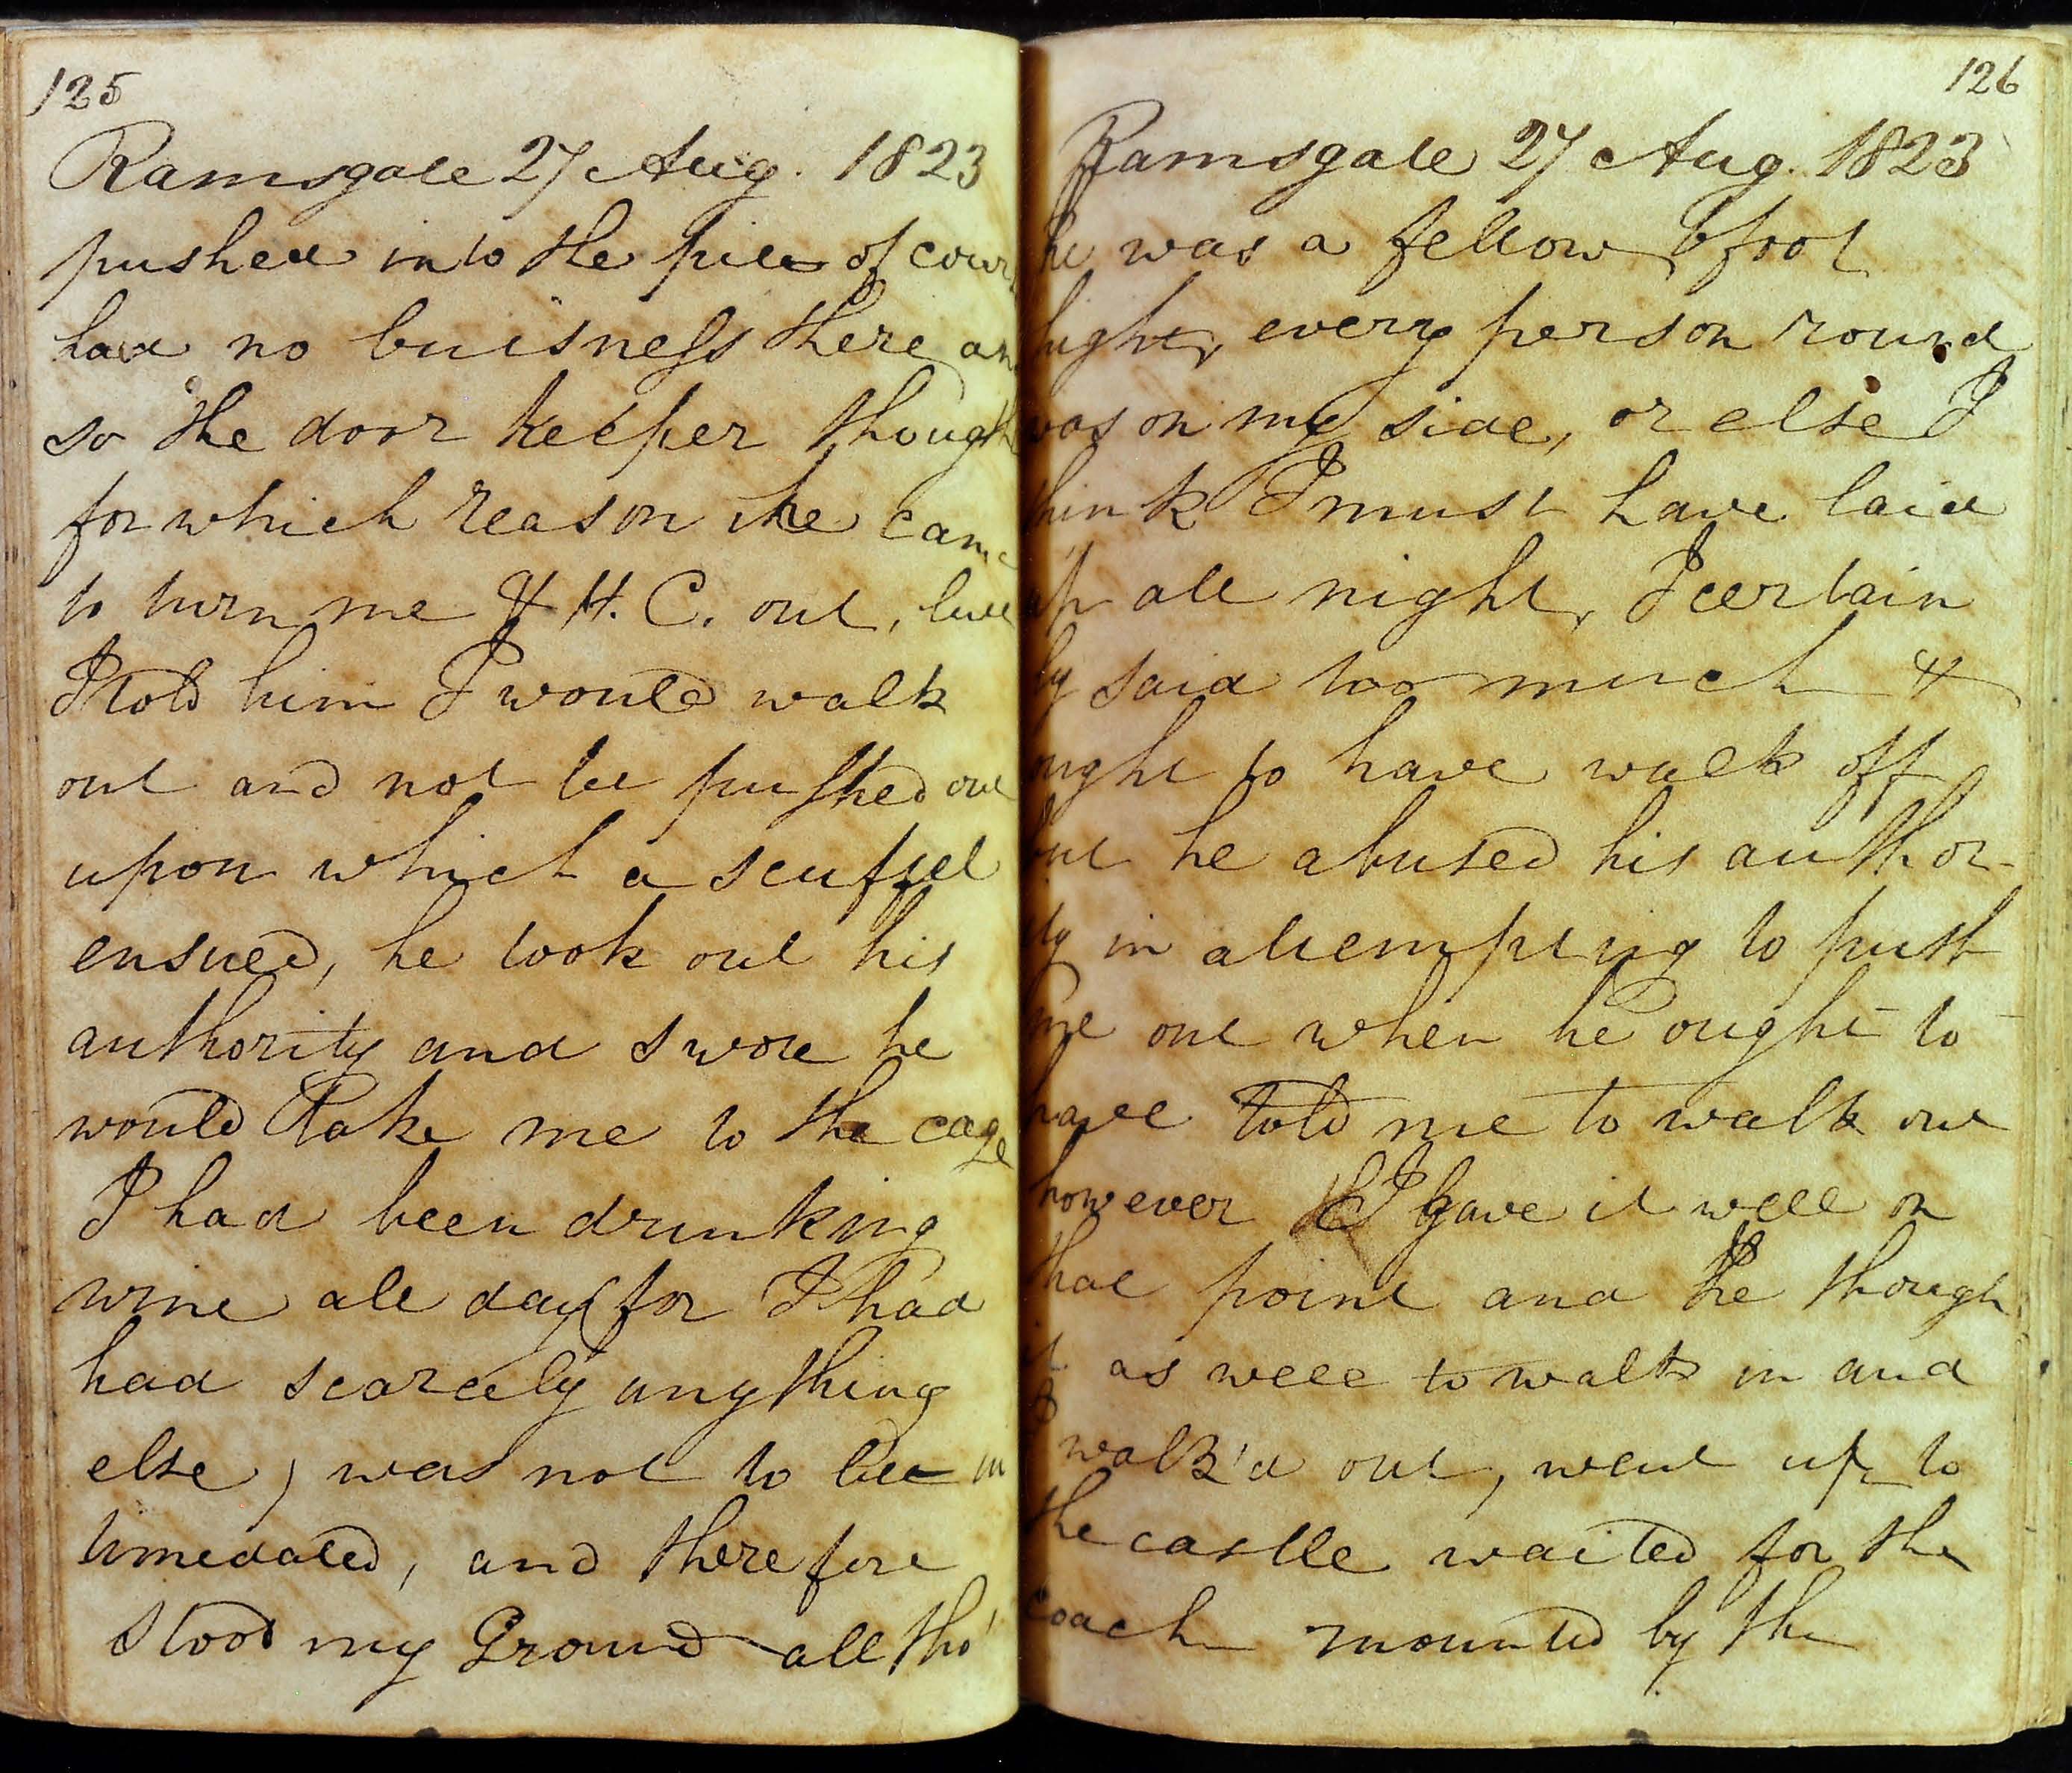 125
Ramsgate 27 Aug. 1823
pushed into the pile of cour
had no buisness there an
so the door keeper though
for which reason he came
to turn me & H. C. out, but
I told him I would walk
out and not be pushed out
upon which a scuffel
ensued, he took out his
authority and swore he
would take me to the cage
I had been drunking
wine all day (for I had
had scarcely any thing
else) was not to be in
timedated, and therefore
stood my Ground all tho'
126
Ramsgate 27 Aug. 1823
he was a fellow 6 foot
hight, every person round
was on my side, or else I
think I must have laid
up all night, I certain
ly said too much &
ought to have walk off
but he abused his author-
ity in attempting to push
me out when he ought to
have told me to walk out
however I gave it well on
that point and he though
t as well to walk in and
I walk'd out, went up to
the castle waited for the
coach mounted by the